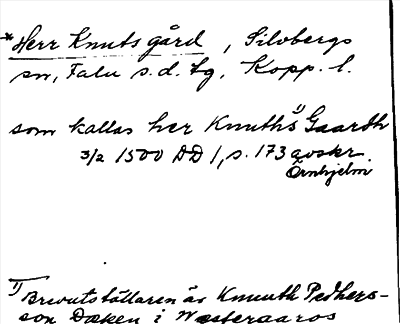 *Herr Knuts gård, Silvbergs
sn, Falu s.d. tg, Kopp. l.
som kallas her Knuths 1) Gaardh
3/2 1500 DD 1, s. 173 avskr.
Örnhjelm
1) Brevutställaren är Knuuth Pedhers-
son Dæken i Wæsteraaros